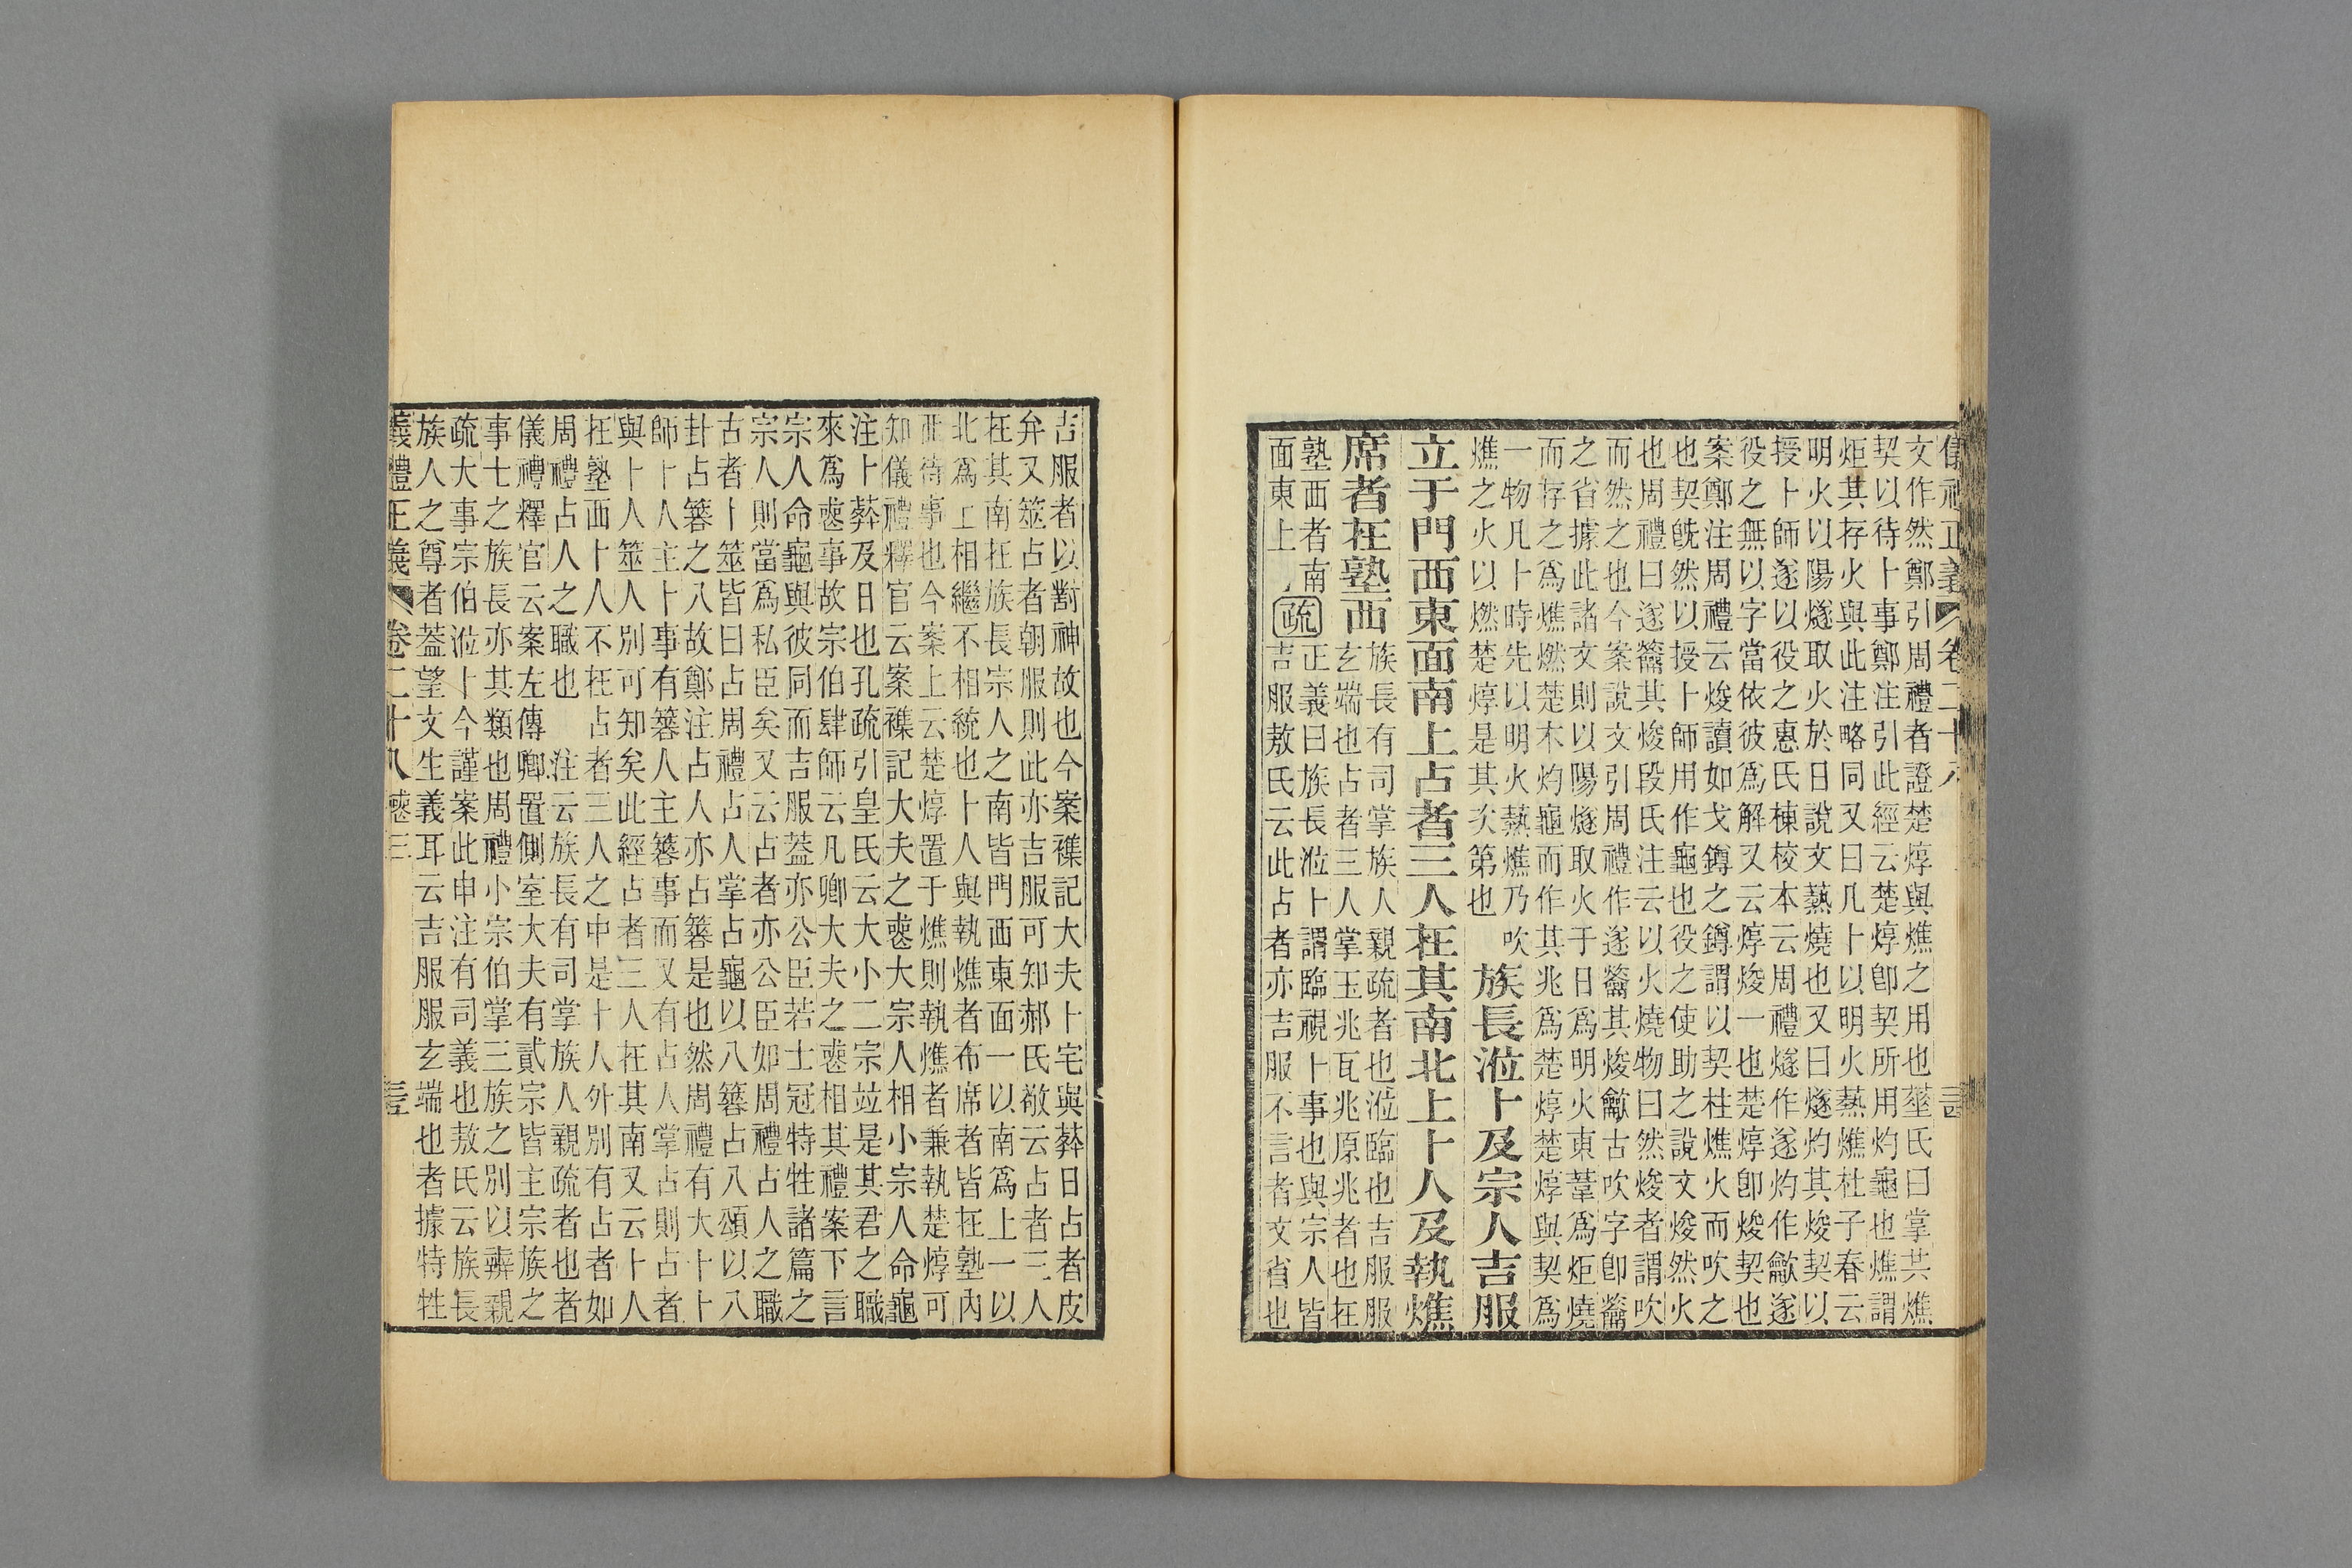 文作然鄭引周禮者證楚焞與燋之用也菙氏曰掌共燋
契以待卜事鄭注引此經云楚焞卽契所用灼龜也燋謂
炬其存火與此注略同又曰凡卜以明火爇燋杜子春云
明火以陽燧取火於日說文爇燒也又曰燧灼其焌契以
授卜師遂以役之惠氏棟校本云周禮燧作遂灼作龡遂
役之無以字當依彼爲解又云焞焌一也楚焞卽焌契也
案鄭注周禮云焌讀如戈鐏之鐏謂以契柱燋火而吹之
也契旣然以授卜師用作龜也役之使助之說文焌然火
也周禮曰遂籥其焌段氏注云以火燒物曰然焌者謂吹
而然之也今案說文引周禮作遂籥其焌龡古吹字卽籥
之省據此諸文則以陽燧取火于日爲明火束葦爲炬燒
而存之爲燋燃楚木灼龜而作其兆爲楚焞楚焞與契爲
一物凡卜時先以明火爇燋乃吹
燋之火以燃楚焞是其次第也
族長涖卜及宗人吉服
立于門西東面南上占者三人在其南北上卜人及執燋
席者在塾西
族長有司掌族人親疏者也涖臨也吉服服
玄端也占者三人掌玉兆瓦兆原兆者也在
塾西者南
面東上
疏
正義曰族長涖卜謂臨視卜事也與宗人皆
吉服敖氏云此占者亦吉服不言者文省也
吉服者以對神故也今案襍記大夫卜宅與葬日占者皮
弁又筮占者朝服則此亦吉服可知郝氏敬云占者三人
在其南在族長宗人之南皆門西東面一以南爲上一以
北爲上相繼不相統也卜人與執燋者布席者皆在塾內
西待事也今案上云楚焞置于燋則執燋者兼執楚焞可
知儀禮釋官云案襍記大夫之喪大宗人相小宗人命龜
注卜葬及日也孔疏引皇氏云大小二宗竝是其君之職
來爲喪事故宗伯肆師云凡卿大夫之喪相其禮案下言
宗人命龜與彼同而吉服蓋亦公臣若士冠特牲諸篇之
宗人則當爲私臣矣又云占者亦公臣如周禮占人之職
古者卜筮皆曰占周禮占人掌占龜以八簭占八頌以八
卦占簭之八故鄭注占人亦占簭是也然周禮有大卜卜
師卜人主卜事有簭人主簭事而又有占人掌占則占者
與卜人筮人別可知矣此經占者三人在其南又云卜人
在塾西卜人不在占者三人之中是卜人外別有占者如
周禮占人之職也　注云族長有司掌族人親疏者也者
儀禮釋官云案左傳卿置側室大夫有貳宗皆主宗族之
事七之族長亦其類也周禮小宗伯掌三族之別以辨親
疏大事宗伯涖卜今謹案此申注有司義也敖氏云族長
族人之尊者蓋望文生義耳云吉服服玄端也者據特牲
儀禮正義　卷二十八　喪三